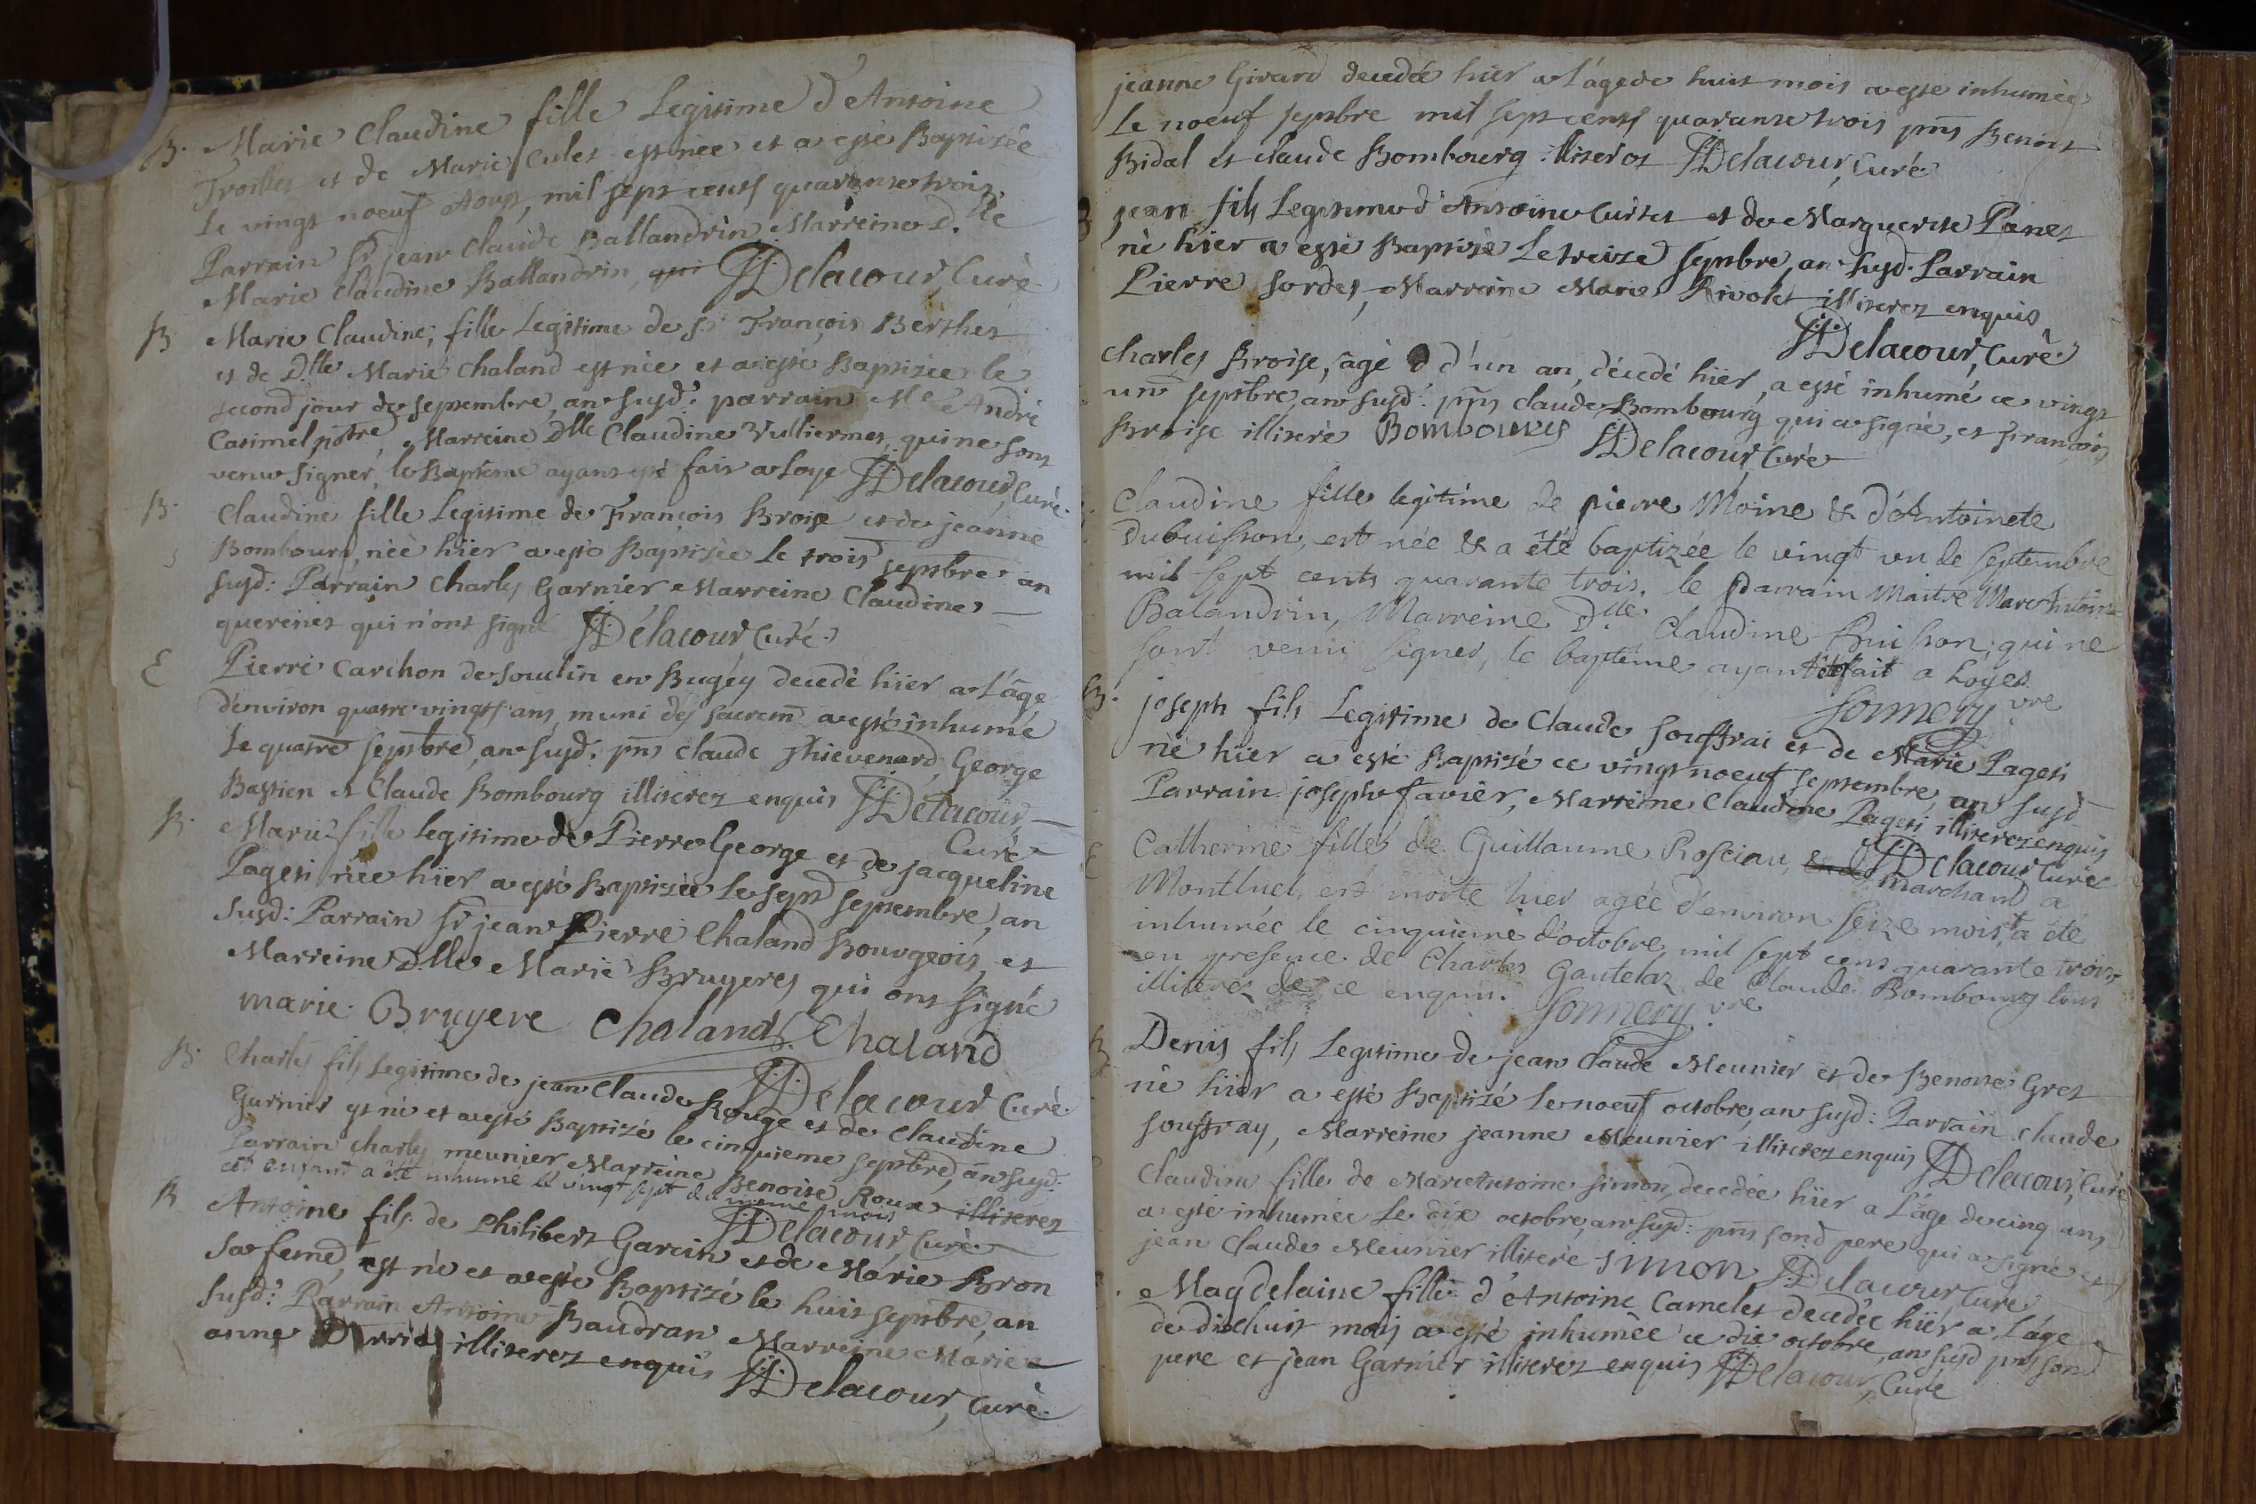 B. Marie Claudine fille Legitime d'Antoine
Troillet et de Marie Culet est née et a esté Baptisée
le vingt noeuf Aoust, mil sept cents quarante trois.
Parrain Sr jean Claude Ballandrin Marreine D.lle
Marie Claudine Ballandrin, qui JJDelacour, Curé
B. Marie Claudine, fille Legitime de Sr François Berthet
et de Dlle Marie Chaland est née et a esté Baptisée le
second jour de septembre, an susd: parrain Me André
Casimel pbtre, Marreine Dlle Claudine Vulliermet, qui ne sont
venu signer, le Baptême ayant esté fait a Loye JJDelacour, Curé.
B. Claudine fille Legitime de François Broise et de jeanne
Bombourg, née hïer a esté Baptisée le trois septbre an
susd: Parrain Charles Garnier Marreine Claudine
querenet qui n'ont signé JJDelacour, Curé.
E Pierre Carchon de Soudin en Bugéy decedé hïer a l'âge
d'environ quatre vingts ans, muni des sacremts a esté inhumé
le quatre septbre, an susd: pnts Claude Thievenard, George
Bastien et Claude Bombourg illiterez enquis JJDelacour,
Curé
B. Marie fille legitime de Pierre George et de jacqueline
Pageti née hïer a esté Baptisée le sept septembre, an
susd: Parrain Sr jean Pierre Chaland Bourgeois, et
Marreine Dlle Marie Bruyeres qui ont signé
marie Bruyere Chaland Chaland
JJDelacour Curé.
B. Charles fils Legitime de jean Claude Rouge et de Claudine
Garnier est né et a esté Baptizé le cinquieme septbre, an susd:
Parrain Charles meunier Marreine Benoite Roux illiterez
cet enfant a été inhumé le vingt sept du meme mois
JJDelacour, Curé.
B Antoine fils de Philibert Garcin et de Marie Bron
sa feme, est né et a esté Baptizé le huit septbre, an
susd: Parrain Antoine Baudran Marreine Marie
anne illiterez enquis JJDelacour, Curé.
jeanne Girard decedée hïer a l'âge de huit mois a esté inhumée
Le noeuf septbre mil sept cents quarante trois pnts Benoit
Bidal et claude Bombourg illiterez JJDelacour, Curé.
B jean fils Legitime d'Antoine Curtet et de Marguerite Panet
né hier a esté Baptizé Le treize septbre, an susd. Parrain
Pierre Sordet, Marreine Marie Rivolet illiterez enquis
JJDelacour, Curé
Charles Broise, âgé d'un an, décedé hïer, a esté inhumé ce vingt
un septbre, an susd: pnts claude Bombourg qui a signé, et François
Broise illiteré Bombourg JJDelacour, Curé
Claudine fille legitime de pierre Moine & d'Antoinete
Dubuisson, est née & a été baptizée le vingt un de septembre
mil sept cents quarante trois. le parrain Maitre Marc Antoine
Balandrin, Marreine Dlle Claudine Buisson, qui ne
sont venu signer, le baptême ayant été fait a Loyes.
Sonnery vre
B. joseph fils Legitime de Claude Souffrai et de Marie Pageti
né hïer a esté Baptizé ce vingt noeuf septembre, an susd
Parrain joseph Favier, Marreine Claudine Pageti illiterez enquis
JJDelacour Curé
E Catherine fille de Guillaume Rosciau, marchand a
Montluel, est morte hier agée d'environ seize mois, a été
inhumée le cinquieme d'octobre mil sept cens quarante trois
en presence de Charles Gautelaz de Claude Bombourg tous
illiterez de ce enquis. Sonnery vre
B Denis fils Legitime de jean Claude Meunier et de Benoite Gret
né hïer a esté Baptizé Le noeuf octobre, an susd: Parrain claude
souffray, Marreine jeanne Meunier illiterez enquis JJDelacour, Curé
Claudine fille de Marc Antoine Simon, decedée hïer a l'âge de cinq ans
a esté inhumée Le dix octobre, an susd: pnts sond pere qui a signé et
jean Claude Meunier illiteré Simon JJDelacour Curé
Magdelaine fille d'Antoine Camelet decedée hïer a l'âge
de dixhuit mois a esté inhumée ce dix octobre, an susd pnts sond
pere et jean Garnier illiterez enquis JJDelacour, Curé